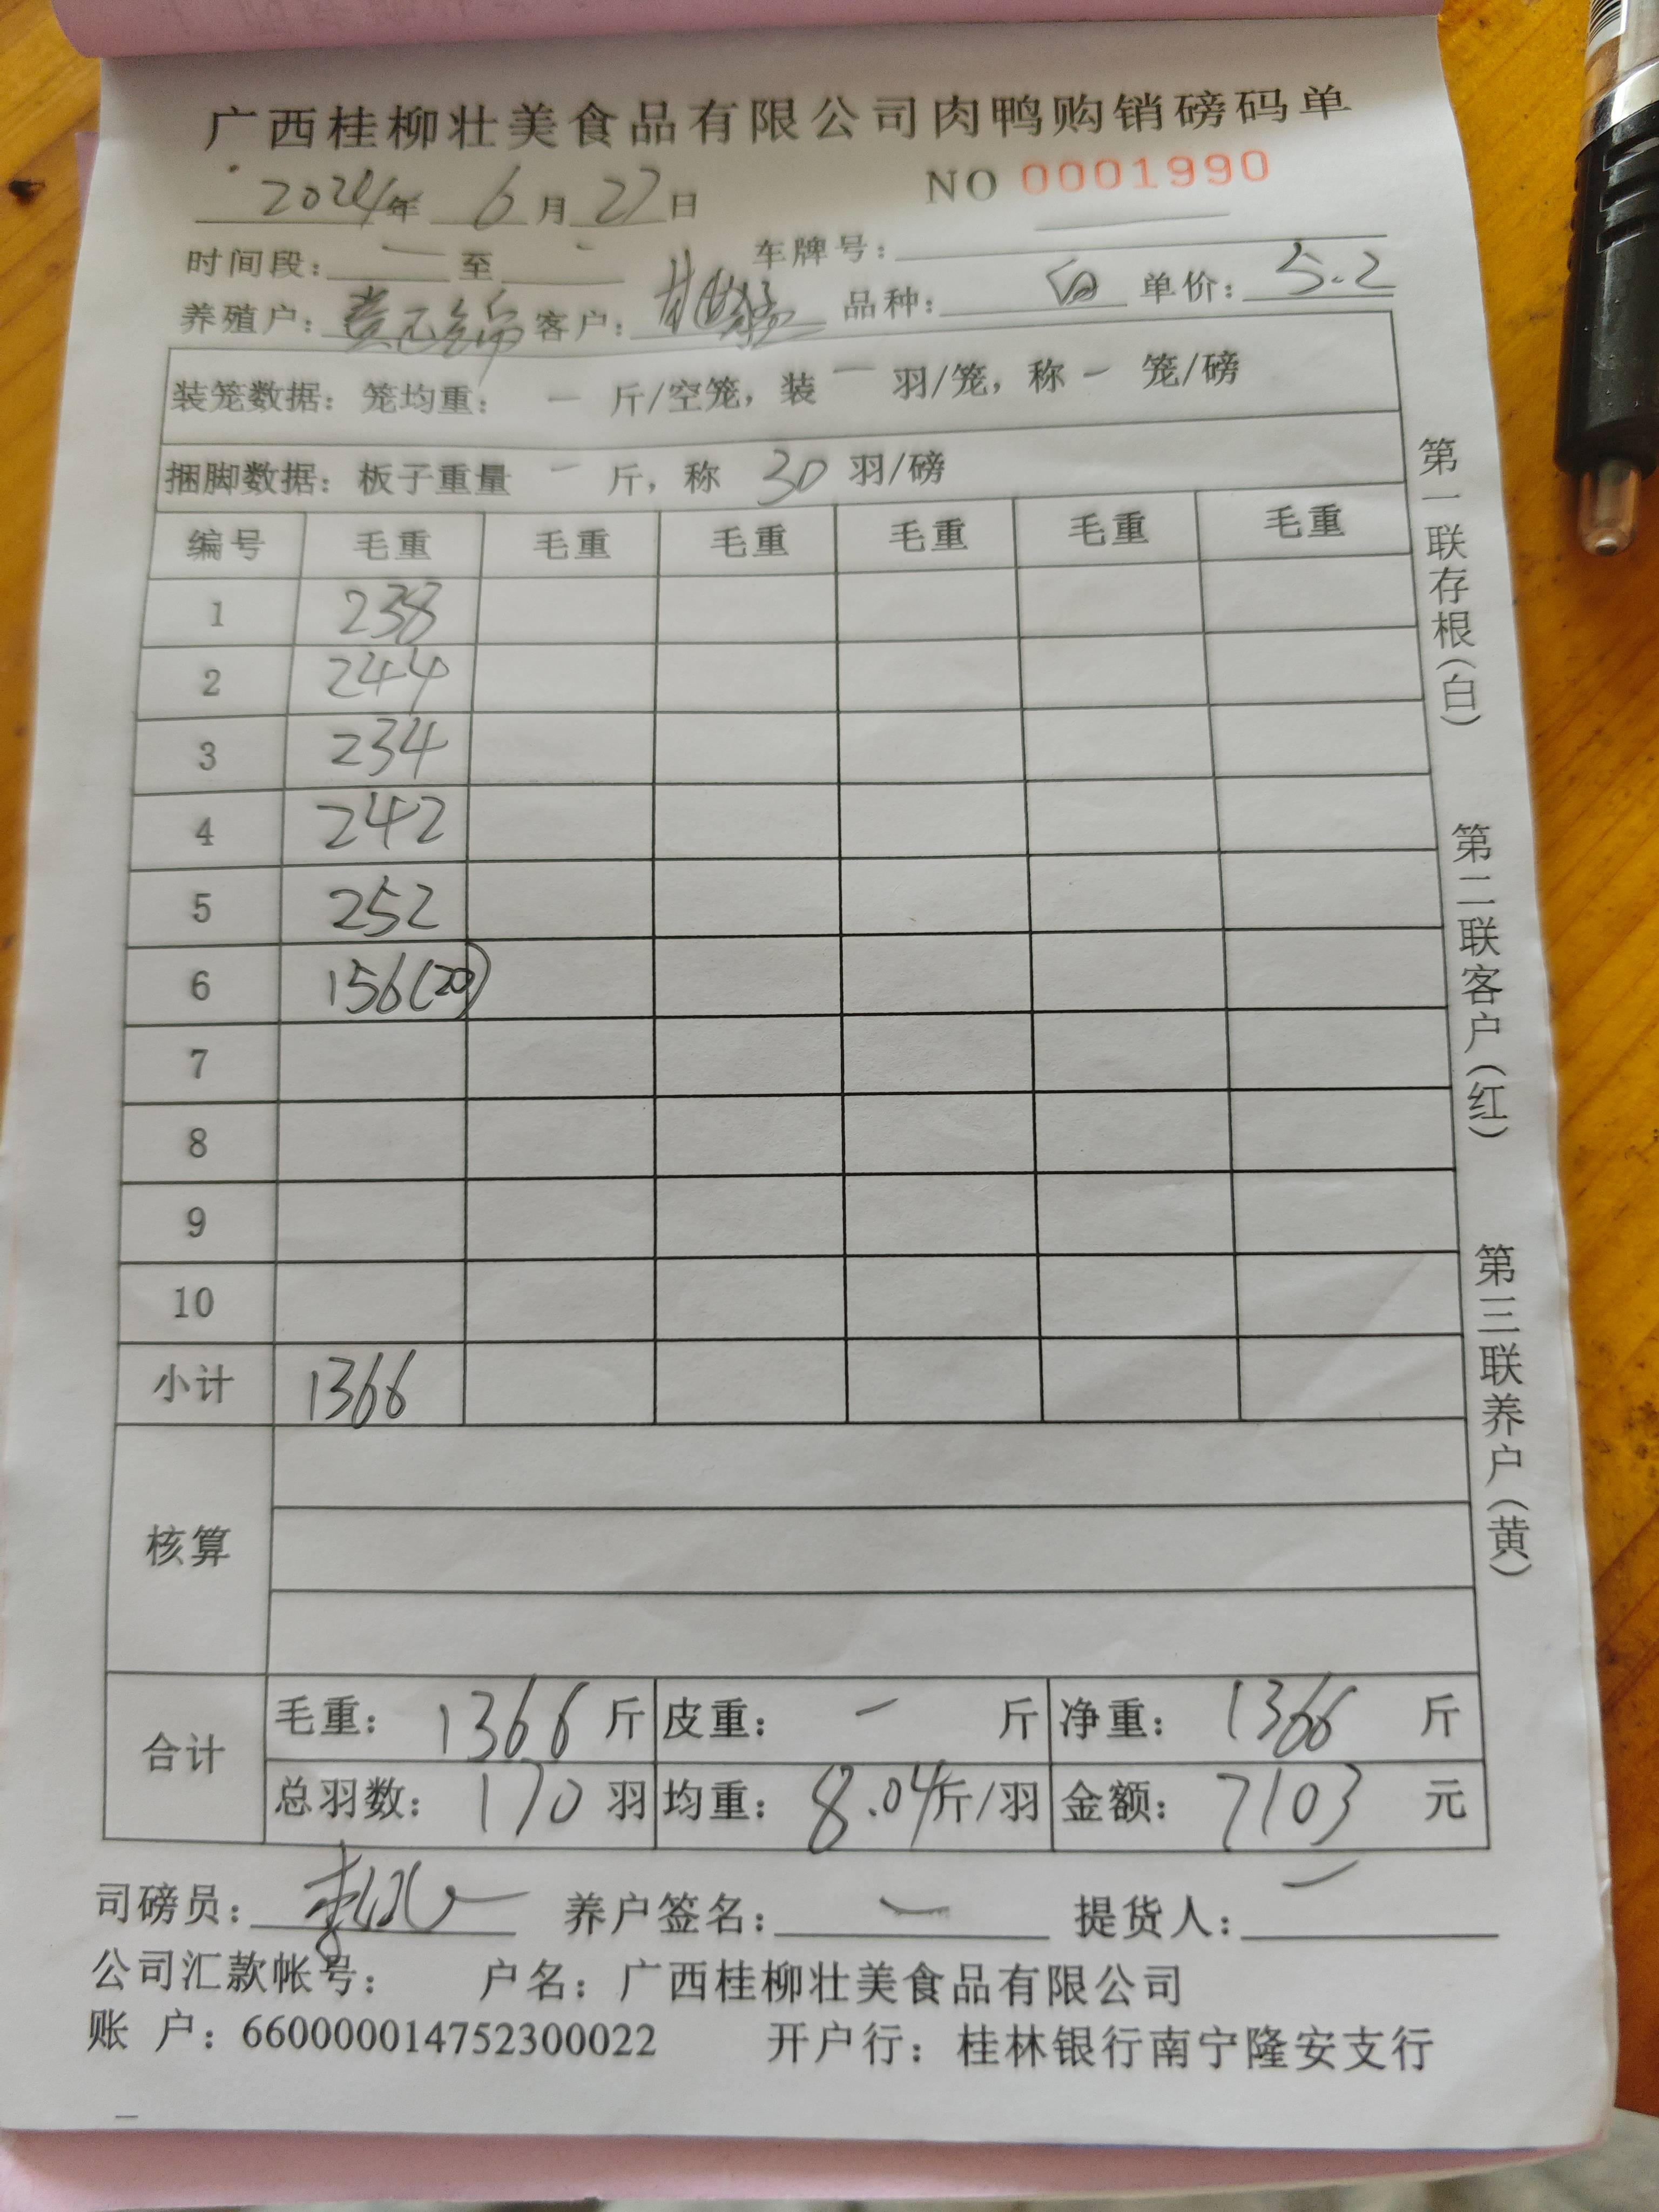 广西桂柳壮美食品有限公司肉鸭购销磅码单
2024年 6月27日 NO 0001990
时间段: — 至 - 车牌号:
养殖户: 客户: 品种: 单价: 5.2
装笼数据: 笼均重: — 斤/空笼, 装 — 羽/笼, 称 — 笼/磅
捆脚数据: 板子重量 — 斤, 称 30 羽/磅
编号 毛重 毛重 毛重 毛重 毛重 毛重
1 238
2 244
3 234
4 242
5 252
6 156(20)
7
8
9
10
小计 1366
核算
合计 毛重: 1366 斤 皮重: — 斤 净重: 1366 斤
总羽数: 170 羽 均重: 8.04斤/羽 金额: 7103 元
司磅员: 养户签名: — 提货人: —
公司汇款帐号: 户名: 广西桂柳壮美食品有限公司
账 户: 660000014752300022 开户行: 桂林银行南宁隆安支行
第一联存根(白) 第二联客户(红) 第三联养户(黄)